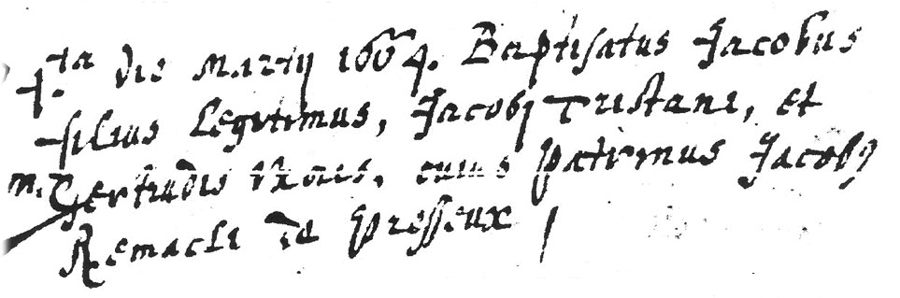 4.ta die Martij 1664. Baptisatus Jacobus
filius Legitimus, Jacobj Tristani, et
m. Gertrudis uxoris, cuius patrinus Jacobus
Remacli de Presseux